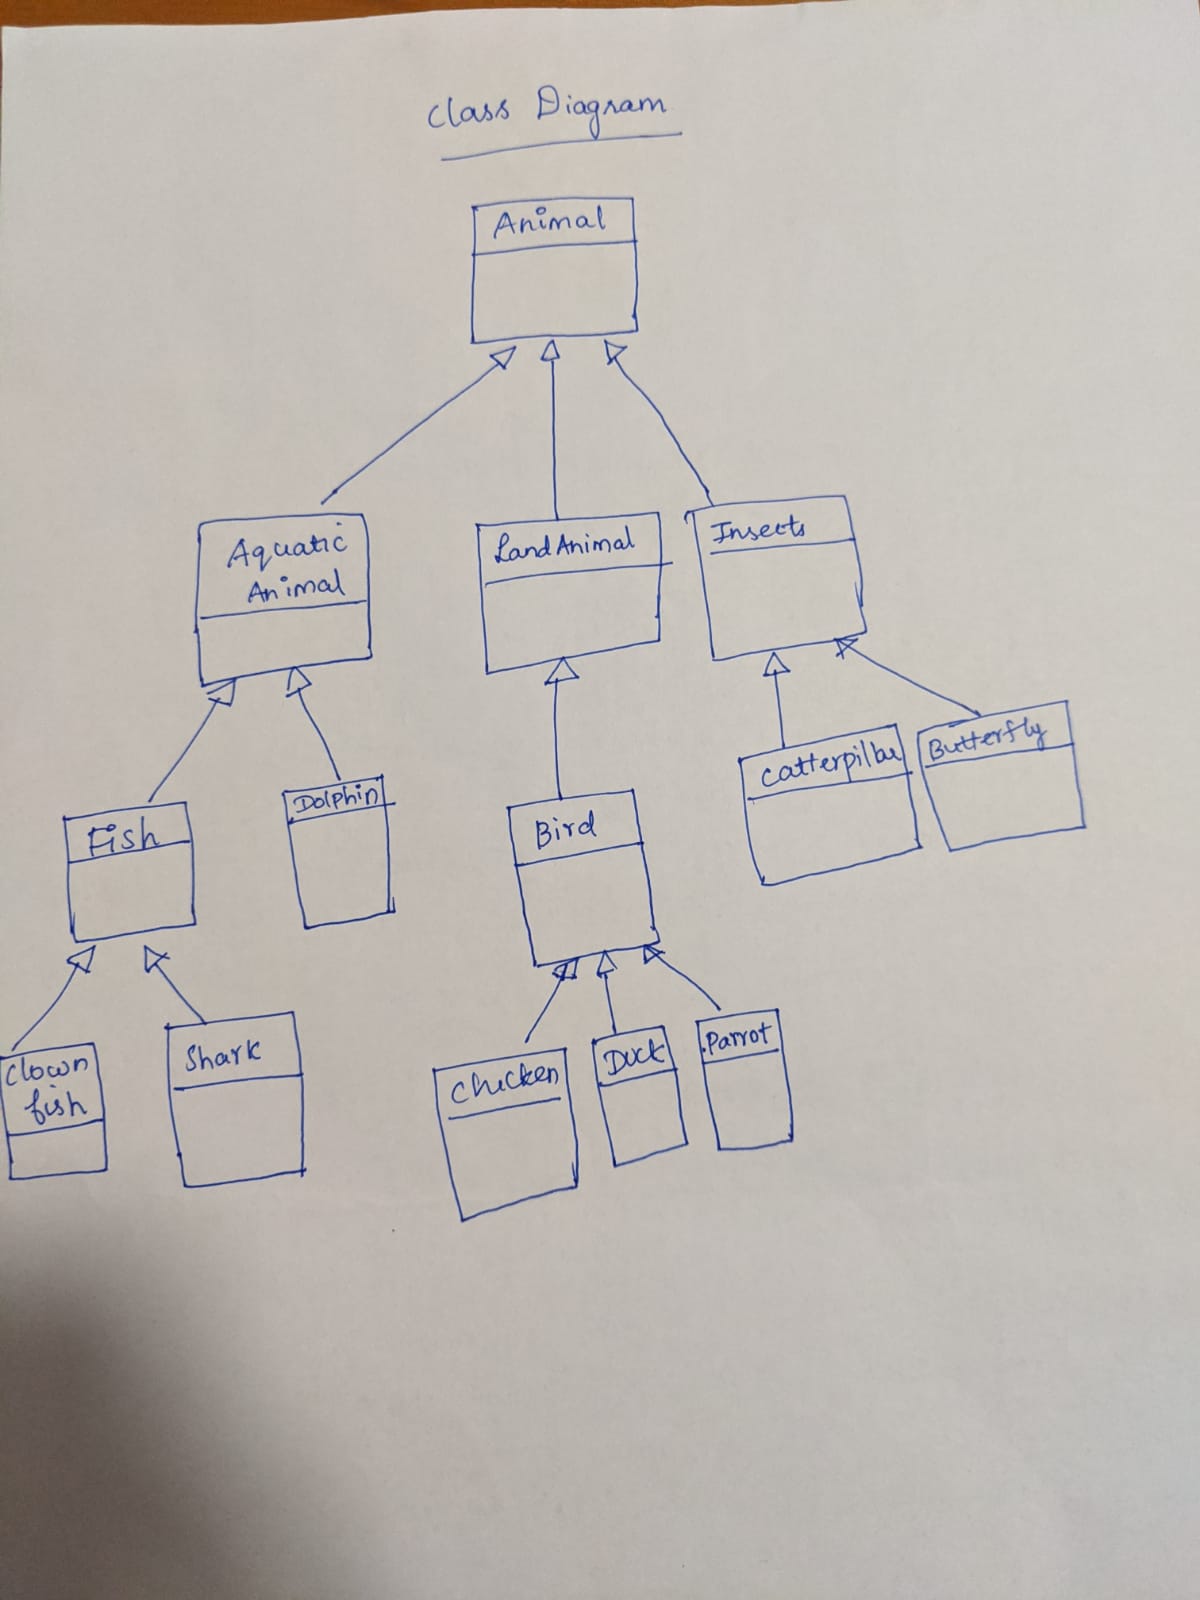 Class Diagram
Animal
Aquatic
Animal
LandAnimal
Insects
Fish
Dolphin
Bird
Catterpillar
Butterfly
Clown
fish
Shark
Chicken
Duck
Parrot